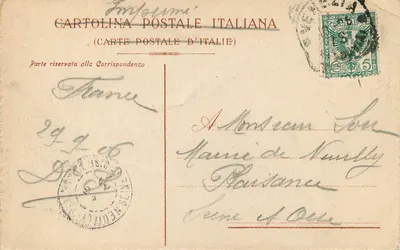 Imprimé
CARTOLINA POSTALE ITALIANA
(CARTE POSTALE D'ITALIE)
VENEZIA
5
Parte riservata alla Corrispondenza
France
29.9.06
A Monsieur
Mairie de Neuilly
Plaisance
Seine et Oise